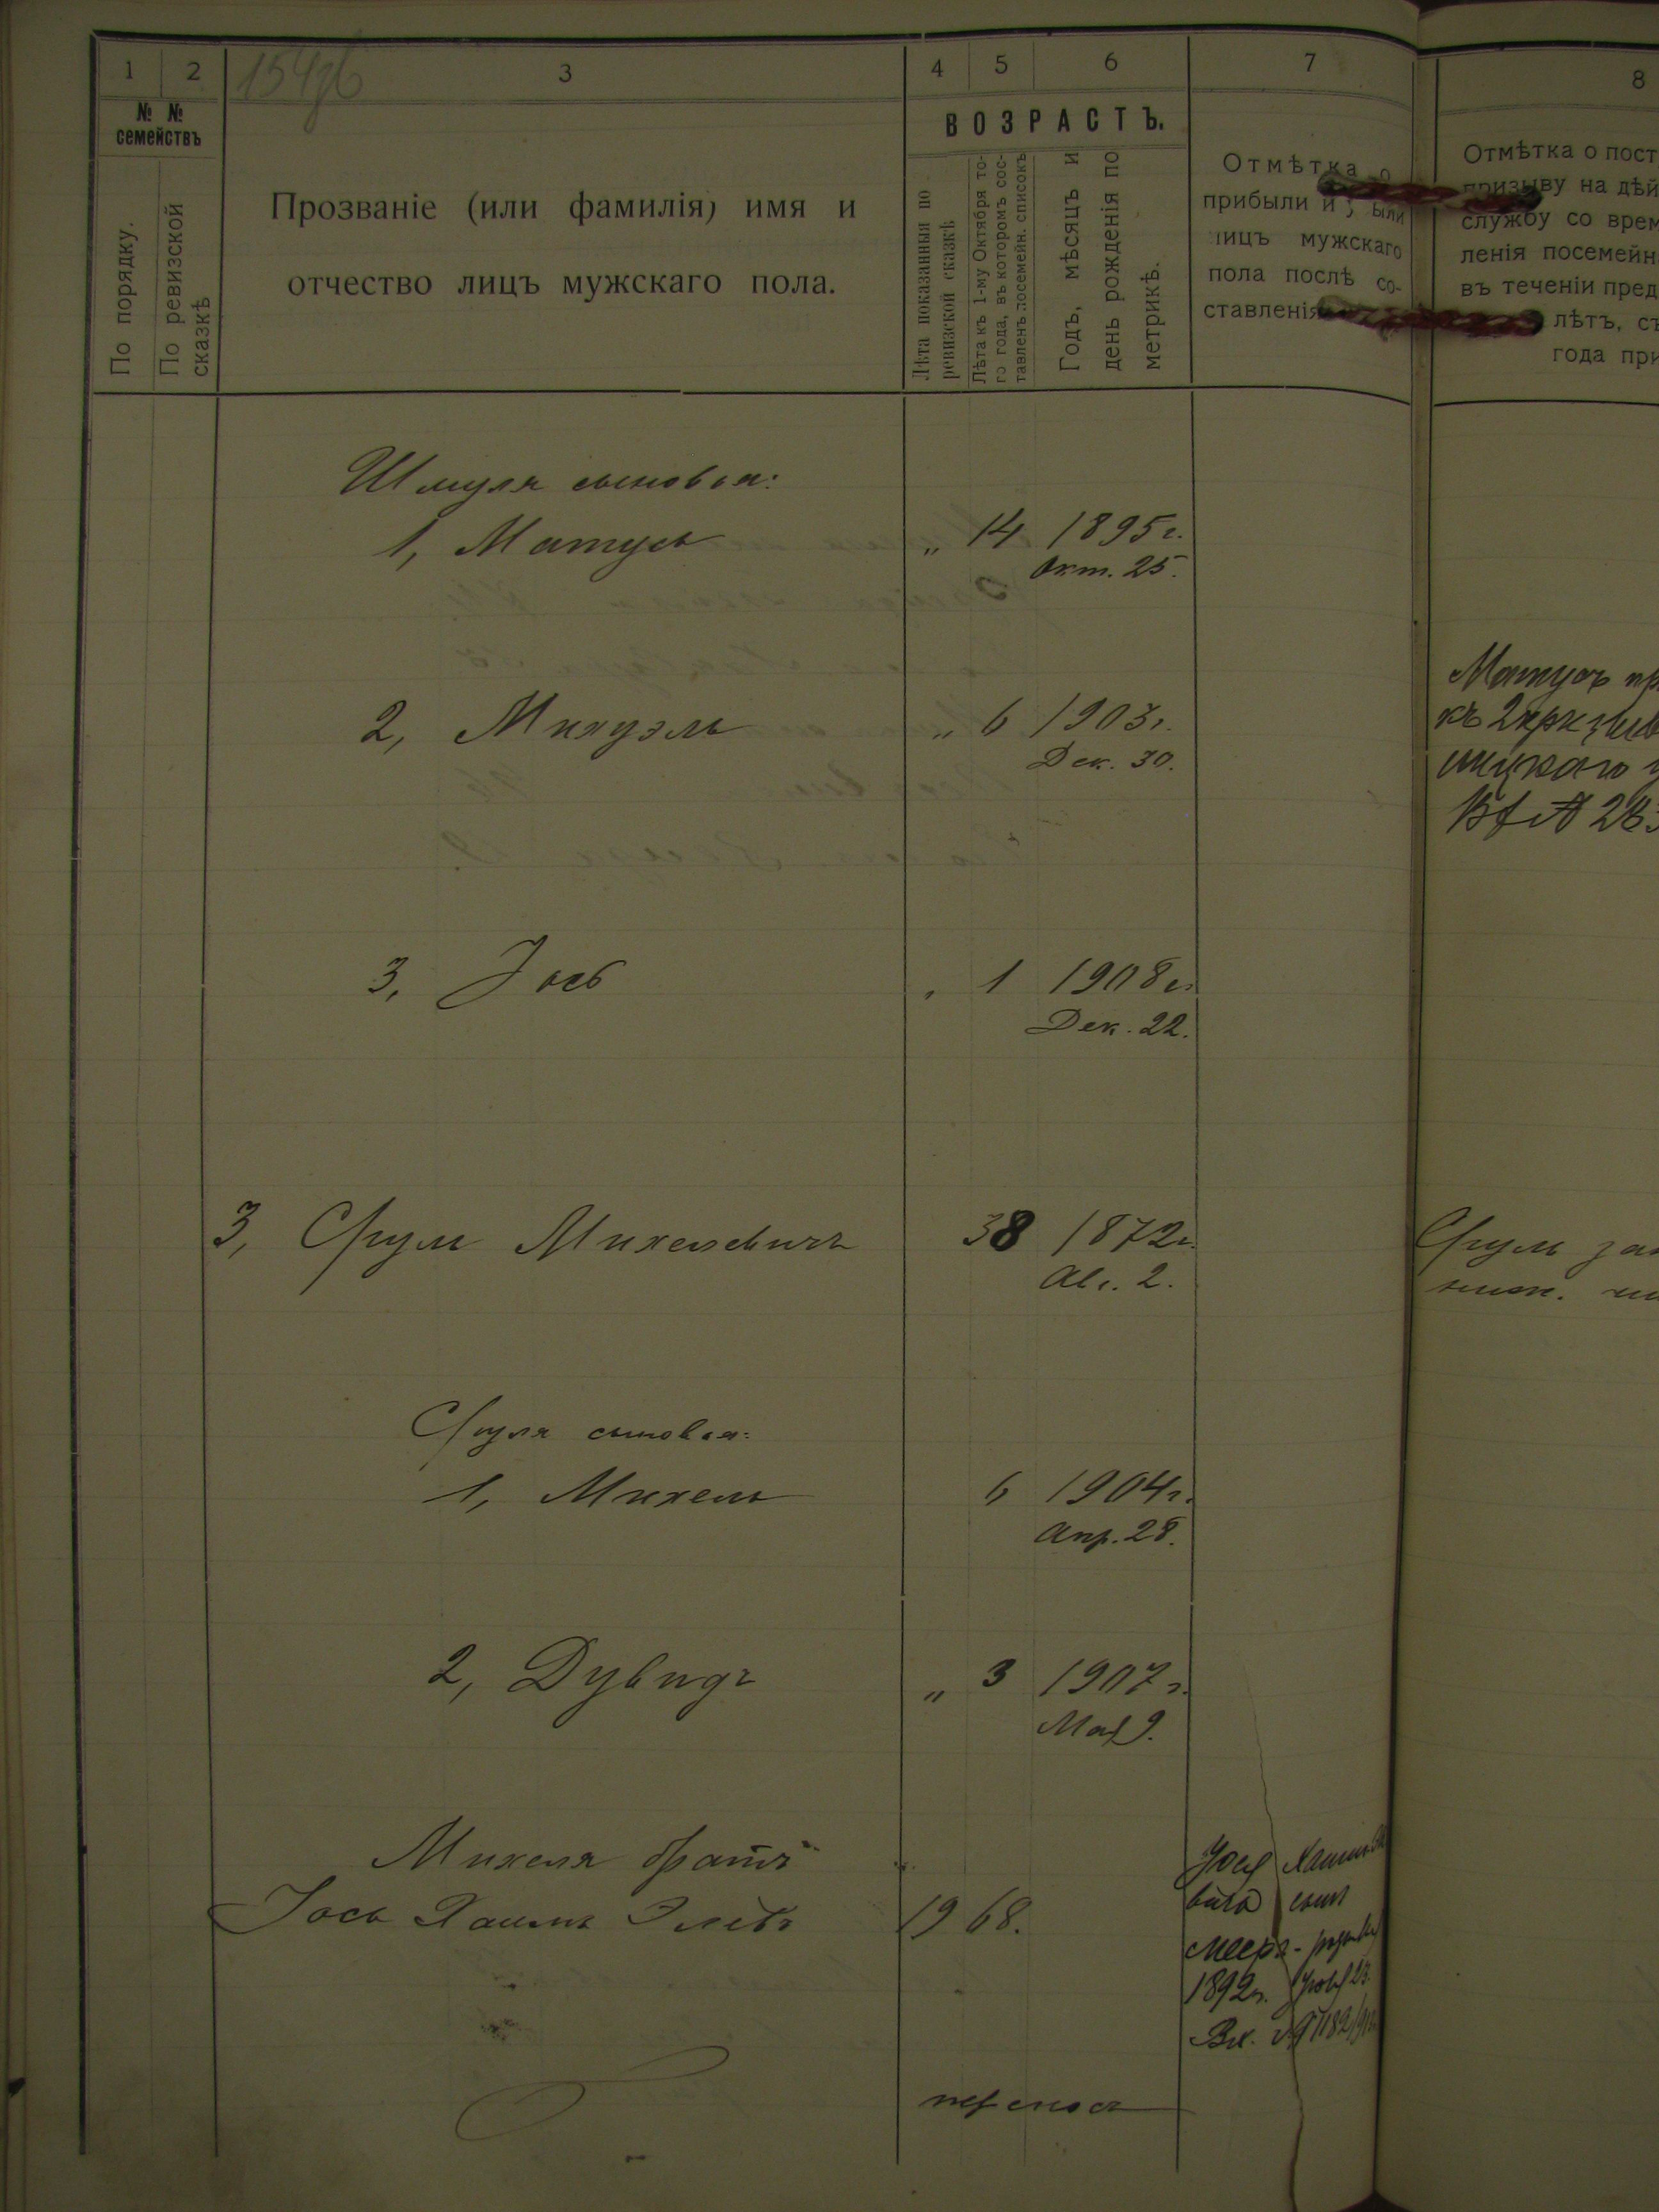 1 2 3 4 5 6 7 8
№ № семействъ
По порядку.
По ревизской сказкѣ
Прозваніе (или фамилія) имя и
отчество лицъ мужскаго пола.
ВОЗРАСТЪ.
Лѣта показанныя по
ревизской сказкѣ
Лѣта къ 1-му Октября то-
го года, въ которомъ сос-
тавленъ посемейн. списокъ
Годъ, мѣсяцъ и
день рожденія по
метрикѣ.
Отмѣтка о
прибыли и
лицъ мужскаго
пола послѣ со-
ставленія
Отмѣтка о пост
призыву на дѣй
службу со врем
ленія посемейн
въ теченіи пред
лѣтъ, съ
года при
Шмуля сыновья:
1, Матусъ „ 14 1895 г.
Окт. 25.
2, Михуэль „ 6 1903 г.
Дек. 30.
Матусъ пр
3, Іось „ 1 1908 г.
Дек. 22.
3, Сруль Михелевичъ 38 1872 г.
Авг. 2.
Сруль
Сруля сыновья:
1, Михель 6 1904 г.
Апр. 28.
2, Дувидъ „ 3 1907 г.
Мая 9.
Михеля братъ
Іось Хаимъ 19 68.
сынъ
Мееръ-
1892 г.
Вх. №